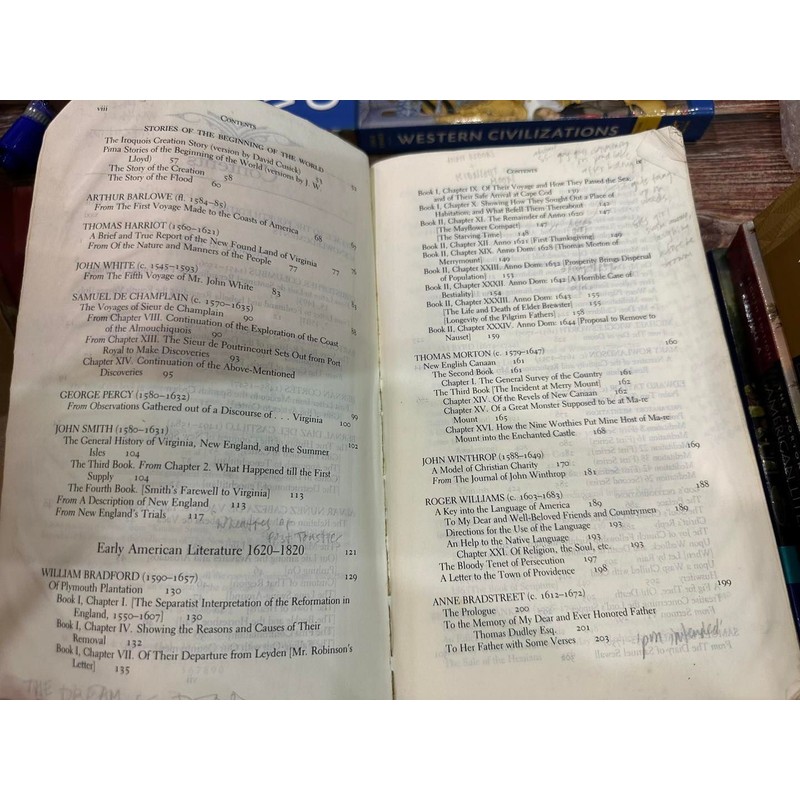 WESTERN CIVILIZATIONS
viii
CONTENTS
STORIES OF THE BEGINNING OF THE WORLD
The Iroquois Creation Story (version by David Cusick) 53
Pima Stories of the Beginning of the World (versions by J. W.
Lloyd) 57
The Story of the Creation 58
The Story of the Flood 60
ARTHUR BARLOWE (fl. 1584–85)
From The First Voyage Made to the Coasts of America 68
THOMAS HARRIOT (1560–1621) 67
A Brief and True Report of the New Found Land of Virginia 77
From Of the Nature and Manners of the People 77
JOHN WHITE (c. 1545–1593) 78
From The Fifth Voyage of Mr. John White 83
SAMUEL DE CHAMPLAIN (c. 1570–1635)
The Voyages of Sieur de Champlain 90
From Chapter VIII. Continuation of the Exploration of the Coast
of the Almouchiquois 90
From Chapter XIII. The Sieur de Poutrincourt Sets Out from Port
Royal to Make Discoveries 93
Chapter XIV. Continuation of the Above-Mentioned
Discoveries 95
GEORGE PERCY (1580–1632) 99
From Observations Gathered out of a Discourse of . . . Virginia 100
JOHN SMITH (1580–1631) 102
The General History of Virginia, New England, and the Summer
Isles 104
The Third Book. From Chapter 2. What Happened till the First
Supply 104
The Fourth Book. [Smith's Farewell to Virginia] 113
From A Description of New England 113
From New England's Trials 117
Early American Literature 1620–1820 121
WILLIAM BRADFORD (1590–1657) 129
Of Plymouth Plantation 130
Book I, Chapter I. [The Separatist Interpretation of the Reformation in
England, 1550–1607] 130
Book I, Chapter IV. Showing the Reasons and Causes of Their
Removal 132
Book I, Chapter VII. Of Their Departure from Leyden [Mr. Robinson's
Letter] 135
THE DREAM
CONTENTS
ix
Book I, Chapter IX. Of Their Voyage and How They Passed the Sea,
and of Their Safe Arrival at Cape Cod 139
Book I, Chapter X. Showing How They Sought Out a Place of
Habitation; and What Befell Them Thereabout 142
Book II, Chapter XI. The Remainder of Anno 1620 147
[The Mayflower Compact] 147
[The Starving Time] 148
Book II, Chapter XII. Anno 1621 [First Thanksgiving] 149
Book II, Chapter XIX. Anno Dom: 1628 [Thomas Morton of
Merrymount] 149
Book II, Chapter XXIII. Anno Dom: 1632 [Prosperity Brings Dispersal
of Population] 153
Book II, Chapter XXXII. Anno Dom: 1642 [A Horrible Case of
Bestiality] 154
Book II, Chapter XXXIII. Anno Dom: 1643 155
[The Life and Death of Elder Brewster] 155
[Longevity of the Pilgrim Fathers] 158
Book II, Chapter XXXIV. Anno Dom: 1644 [Proposal to Remove to
Nauset] 159
THOMAS MORTON (c. 1579–1647) 160
New English Canaan 161
The Second Book 161
Chapter I. The General Survey of the Country 161
The Third Book [The Incident at Merry Mount] 162
Chapter XIV. Of the Revels of New Canaan 162
Chapter XV. Of a Great Monster Supposed to be at Ma-re
Mount 165
Chapter XVI. How the Nine Worthies Put Mine Host of Ma-re
Mount into the Enchanted Castle 168
JOHN WINTHROP (1588–1649) 169
A Model of Christian Charity 170
From The Journal of John Winthrop 181
ROGER WILLIAMS (c. 1603–1683) 188
A Key into the Language of America 189
To My Dear and Well-Beloved Friends and Countrymen 189
Directions for the Use of the Language 193
An Help to the Native Language 193
Chapter XXI. Of Religion, the Soul, etc. 193
The Bloody Tenet of Persecution 197
A Letter to the Town of Providence 198
ANNE BRADSTREET (c. 1612–1672) 199
The Prologue 200
To the Memory of My Dear and Ever Honored Father
Thomas Dudley Esq. 201
To Her Father with Some Verses 203
1pm intended